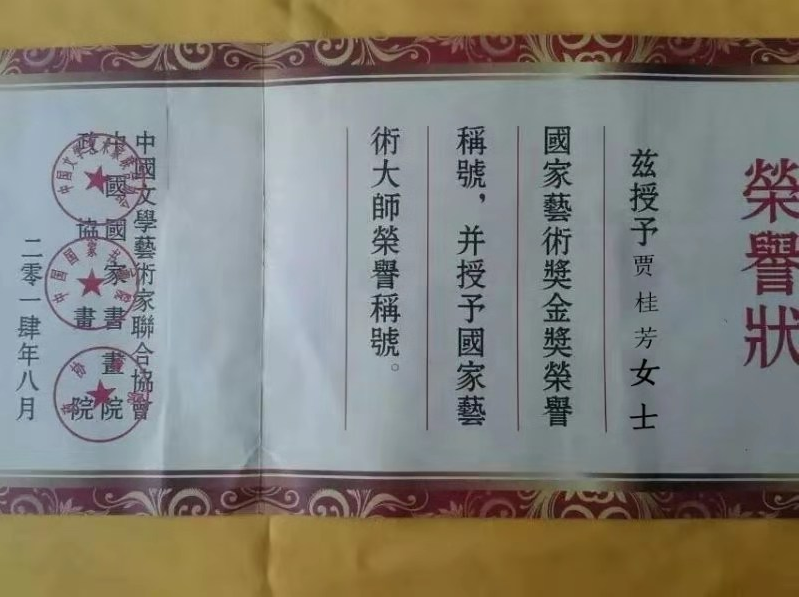 榮譽狀
茲授予贾桂芳女士
國家藝術獎金獎榮譽
稱號，并授予國家藝
術大師榮譽稱號。
中國文學藝術家聯合協會
中國國家書畫院
政協畫院
二零一肆年八月